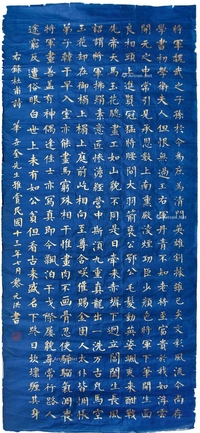 將軍魏武之子孫於今為庶為清門英雄割據雖已矣文彩風流今尚存
學書初學衛夫人但恨無過王右軍丹青不知老將至富貴於我如浮雲
開元之中常引見承恩數上南熏殿凌煙功臣少顏色將軍下筆開生面
良相頭上進賢冠猛將腰間大羽箭褒公鄂公毛髮動英姿颯爽來酣戰
先帝天馬玉花驄畫工如山貌不同是日牽來赤墀下迥立閶闔生長風
詔謂將軍拂絹素意匠慘澹經營中斯須九重真龍出一洗萬古凡馬空
玉花卻在御榻上榻上庭前屹相向至尊含笑催賜金圉人太僕皆惆悵
弟子韓幹早入室亦能畫馬窮殊相幹惟畫肉不畫骨忍使驊騮氣凋喪
將軍畫善蓋有神偶逢佳士亦寫真即今飄泊干戈際屢貌尋常行路人
途窮反遭俗眼白世上未有如公貧但看古來盛名下終日坎壈纏其身
右錄杜甫詩 先生雅賞民國十三年七月 元 書